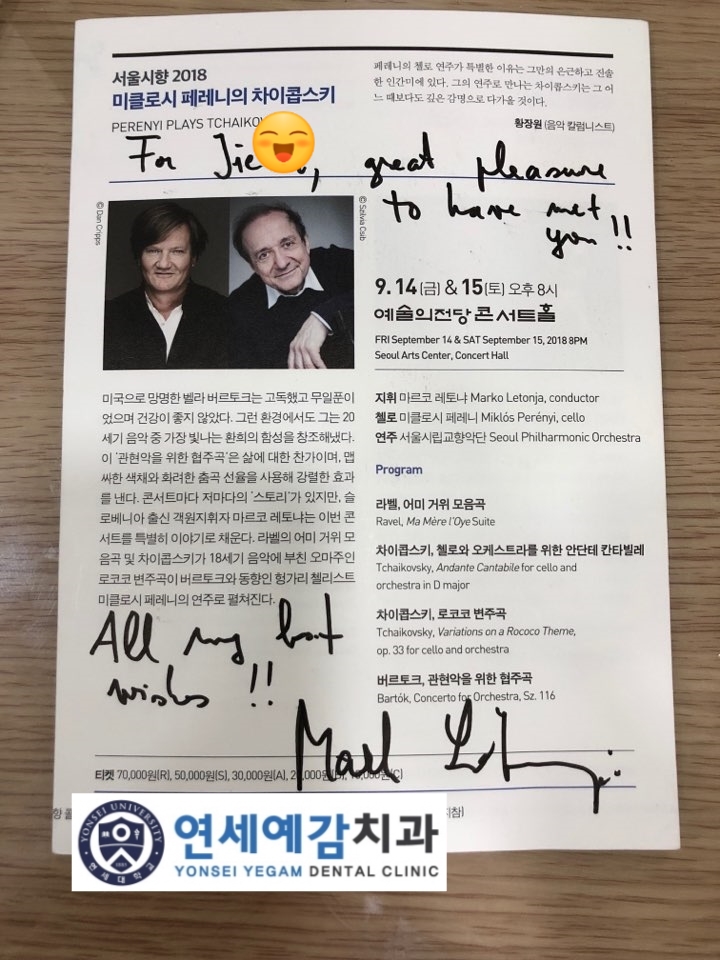 서울시향 2018
미클로시 페레니의 차이콥스키
PERENYI PLAYS TCHAIKOV
페레니의 첼로 연주가 특별한 이유는 그만의 은근하고 진솔
한 인간미에 있다. 그의 연주로 만나는 차이콥스키는 그 어
느 때보다도 깊은 감명으로 다가올 것이다.
황장원 (음악 칼럼니스트)
For Jie, great pleasure
to have met
you!!
© Dan Cripps
© Szilvia Csib
9.14(금) & 15(토) 오후 8시
예술의전당 콘서트홀
FRI September 14 & SAT September 15, 2018 8PM
Seoul Arts Center, Concert Hall
미국으로 망명한 벨라 버르토크는 고독했고 무일푼이
었으며 건강이 좋지 않았다. 그런 환경에서도 그는 20
세기 음악 중 가장 빛나는 환희의 함성을 창조해냈다.
이 '관현악을 위한 협주곡'은 삶에 대한 찬가이며, 맵
싸한 색채와 화려한 춤곡 선율을 사용해 강렬한 효과
를 낸다. 콘서트마다 저마다의 '스토리'가 있지만, 슬
로베니아 출신 객원지휘자 마르코 레토냐는 이번 콘
서트를 특별히 이야기로 채운다. 라벨의 어미 거위 모
음곡 및 차이콥스키가 18세기 음악에 부친 오마주인
로코코 변주곡이 버르토크와 동향인 헝가리 첼리스트
미클로시 페레니의 연주로 펼쳐진다.
지휘 마르코 레토냐 Marko Letonja, conductor
첼로 미클로시 페레니 Miklós Perényi, cello
연주 서울시립교향악단 Seoul Philharmonic Orchestra
Program
라벨, 어미 거위 모음곡
Ravel, Ma Mère l'Oye Suite
차이콥스키, 첼로와 오케스트라를 위한 안단테 칸타빌레
Tchaikovsky, Andante Cantabile for cello and
orchestra in D major
차이콥스키, 로코코 변주곡
Tchaikovsky, Variations on a Rococo Theme,
op. 33 for cello and orchestra
버르토크, 관현악을 위한 협주곡
Bartók, Concerto for Orchestra, Sz. 116
All my best
wishes !!
티켓 70,000원(R), 50,000원(S), 30,000원(A), 10,000원(C)
지참)
YONSEI UNIVERSITY
연세대학교
연세예감치과
YONSEI YEGAM DENTAL CLINIC